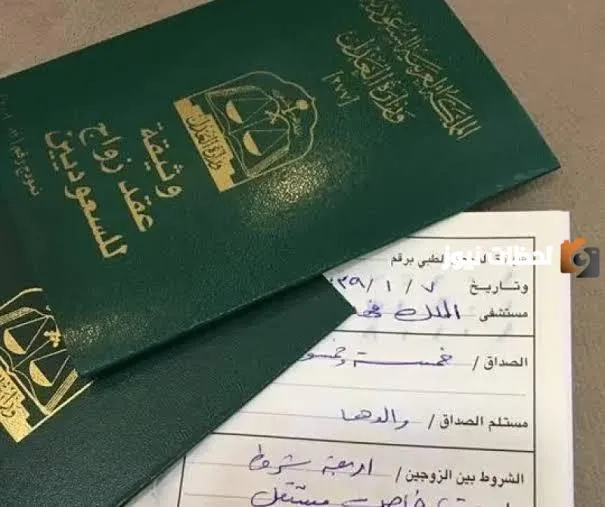 المملكة العربية السعودية
وزارة العدل
[٢٧٧]
وزارة العدل
وثيقة
عقد زواج
للسعوديين
نموذج رقم
لحظات نيوز
الطبي برقم
وتاريخ ٧ / ١ /
مستشفى الملك
الصداق / خمسة
مستلم الصداق / والدها
الشروط بين الزوجين / اربعة شروط
مستقل